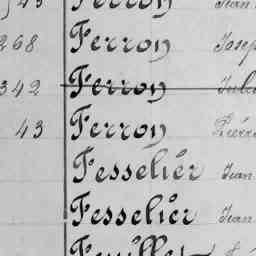 43 Ferron Jean
268 Ferron Josep
342 Ferron Jule
43 Ferron Pierre
Fesselier Jean
Fesselier Jean
Feuillet